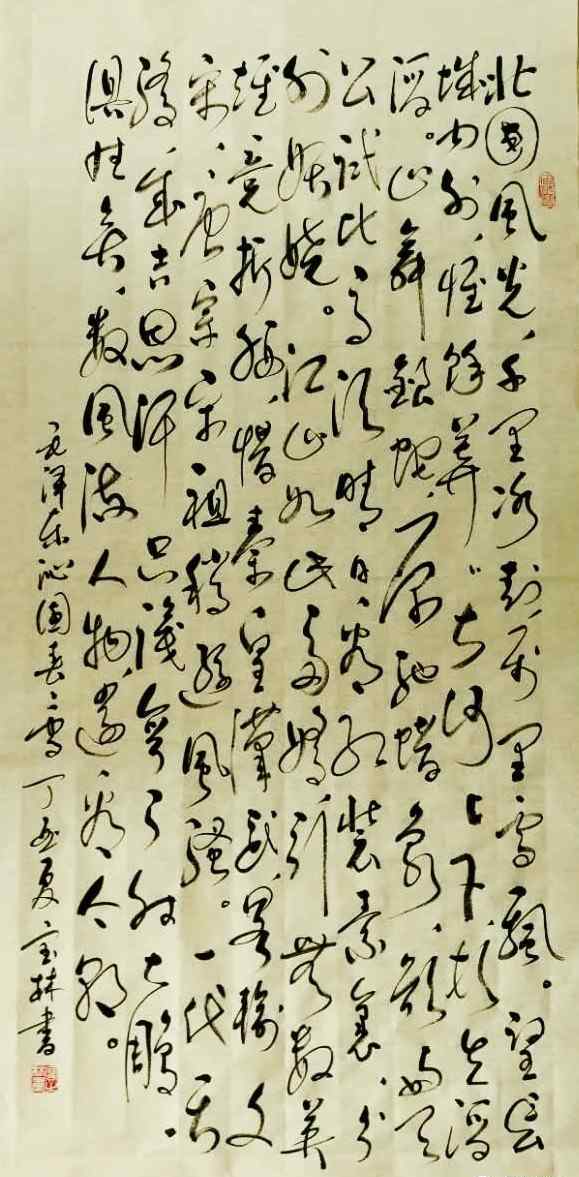 北國風光，千里冰封，萬里雪飄。望長
城内外，惟餘莽〃大河上下頓失滔
滔。山舞銀蛇，原馳蠟象，欲與天
公試比高須晴日，看紅裝素裹，分
外妖嬈。江山如此多嬌，引無數英
雄競折腰，惜秦皇漢武，略輸文
采，唐宗宋祖稍遜風騷。一代天
驕，成吉思汗只識彎弓射大鵰。
俱往矣，數風流人物，還看今朝。
毛澤東沁園春雪丁亥夏宝林書